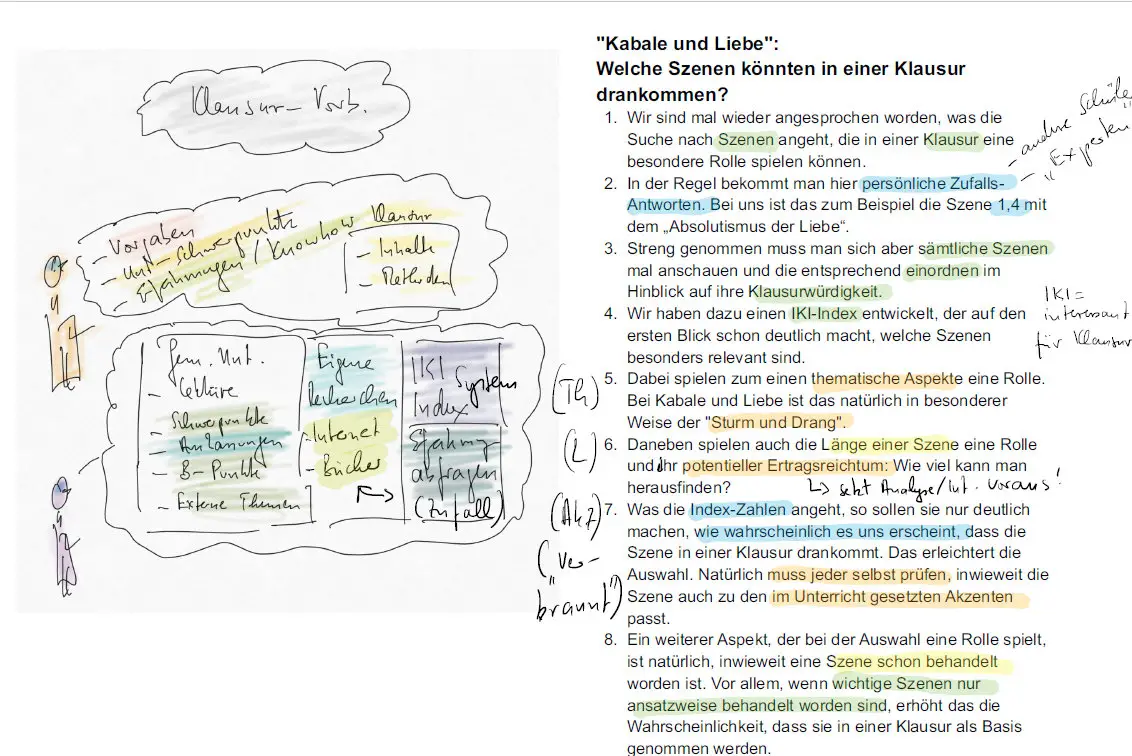 Klausur-Vorb.
- Vorgaben
- Unt-Schwerpunkte
- Erfahrungen / Knowhow Klausur
- Inhalte
- Methoden
Gem. Unt.
- Lektüre
- Schwerpunkte
- B-Punkte
- Externe Themen
Eigene
Recherchen
- Internet
- Bücher
IKI System
Index
abfragen
(Zufall)
"Kabale und Liebe":
Welche Szenen könnten in einer Klausur
drankommen?
1. Wir sind mal wieder angesprochen worden, was die
Suche nach Szenen angeht, die in einer Klausur eine
besondere Rolle spielen können.
- andere Schüler
- "Experten"
2. In der Regel bekommt man hier persönliche Zufalls-
Antworten. Bei uns ist das zum Beispiel die Szene 1,4 mit
dem „Absolutismus der Liebe“.
3. Streng genommen muss man sich aber sämtliche Szenen
mal anschauen und die entsprechend einordnen im
Hinblick auf ihre Klausurwürdigkeit.
IKI =
interessant
für Klausur
4. Wir haben dazu einen IKI-Index entwickelt, der auf den
ersten Blick schon deutlich macht, welche Szenen
besonders relevant sind.
(Th)
5. Dabei spielen zum einen thematische Aspekte eine Rolle.
Bei Kabale und Liebe ist das natürlich in besonderer
Weise der "Sturm und Drang".
(L)
6. Daneben spielen auch die Länge einer Szene eine Rolle
und ihr potentieller Ertragsreichtum: Wie viel kann man
herausfinden?
↳ setzt Analyse/Int. voraus!
(Akz)
7. Was die Index-Zahlen angeht, so sollen sie nur deutlich
machen, wie wahrscheinlich es uns erscheint, dass die
Szene in einer Klausur drankommt. Das erleichtert die
Auswahl. Natürlich muss jeder selbst prüfen, inwieweit die
Szene auch zu den im Unterricht gesetzten Akzenten
passt.
("Ver-
brannt")
8. Ein weiterer Aspekt, der bei der Auswahl eine Rolle spielt,
ist natürlich, inwieweit eine Szene schon behandelt
worden ist. Vor allem, wenn wichtige Szenen nur
ansatzweise behandelt worden sind, erhöht das die
Wahrscheinlichkeit, dass sie in einer Klausur als Basis
genommen werden.